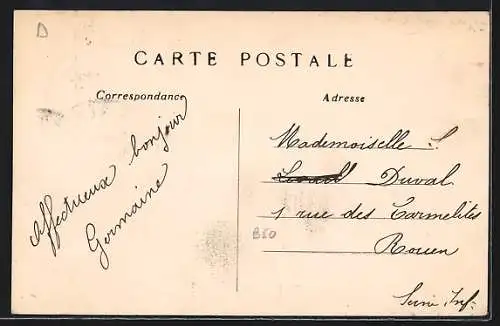 D
CARTE POSTALE
Correspondance
Affectueux bonjour
Germaine
Adresse
Mademoiselle S.
Duval
1 rue des Carmelites
B50
Rouen
Seine Inf.